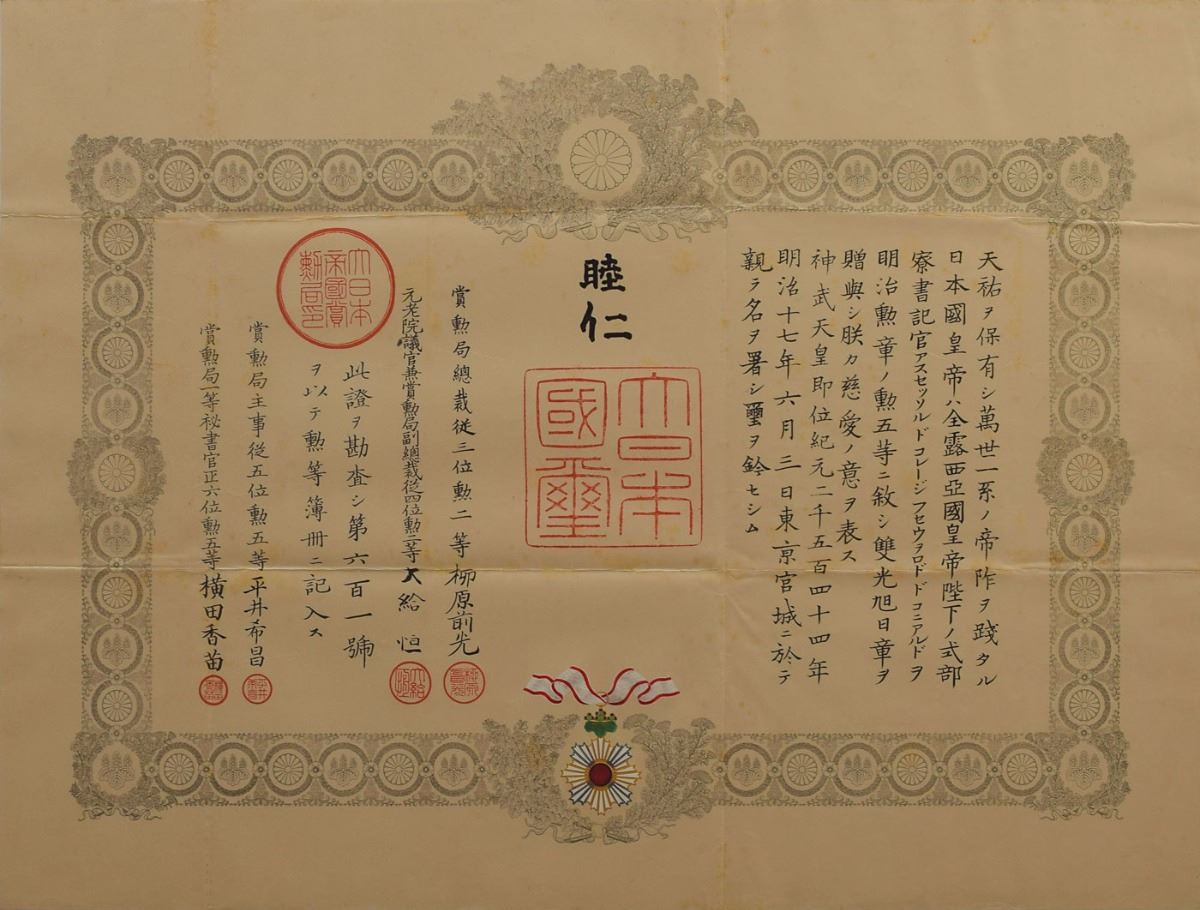 天祐ヲ保有シ萬世一系ノ帝阼ヲ踐タル
日本國皇帝ハ全露西亞國皇帝陛下ノ式部
寮書記官アスセッソルドコレージフセウヲロドドコニアルドヲ
明治勲章ノ勲五等ニ敘シ雙光旭日章ヲ
贈與シ朕カ慈愛ノ意ヲ表ス
神武天皇即位紀元二千五百四十四年
明治十七年六月三日東京宮城ニ於テ
親ラ名ヲ署シ璽ヲ鈐セシム
睦仁
大日本
國璽
賞勲局總裁従三位勲二等柳原前光
元老院議官兼賞勲局副總裁従四位勲三等大給恒
此證ヲ勘査シ第六百一號
ヲ以テ勲等簿冊ニ記入ス
大日本
帝國賞
勳局印
賞勲局主事従五位勲五等平井希昌
賞勲局一等秘書官正六位勲五等横田香苗